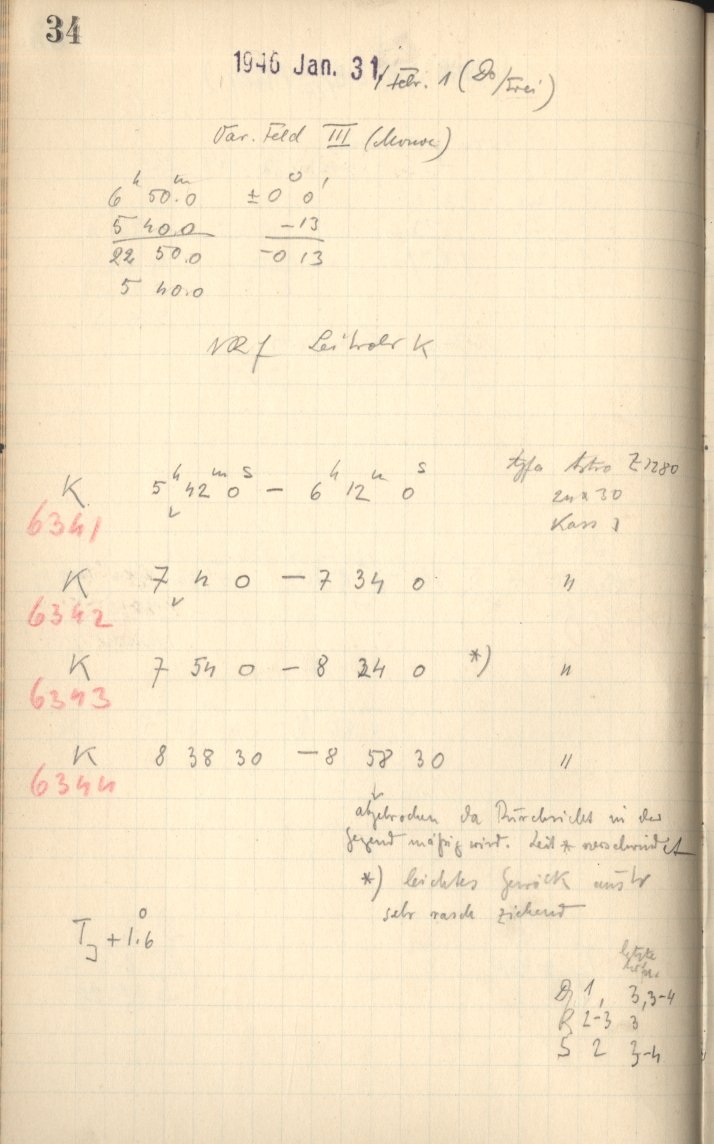 34
1946 Jan. 31 / Febr. 1 (Do/Frei)
Var. Feld III (Monoc)
6 h 50.0 m ±0° 0'
5 40.0 -13
22 50.0 -0 13
5 40.0
K
K 5 h 42 m 0 s — 6 h 12 m 0 s Agfa Astro Z
6341 24 x 30
Kass
K 7 4 0 — 7 34 0 "
6342
K 7 54 0 — 8 24 0 *) "
6343
K 8 38 30 — 8 58 30 "
6344
abgebrochen da Durchsicht in der
Gegend mäßig wird. Leit * verschwindet
*) leichtes Gewölk
sehr rasch ziehend
TJ + 1.6°
letzte
D 1, 3, 3-4
R 2-3 3
S 2 3-4